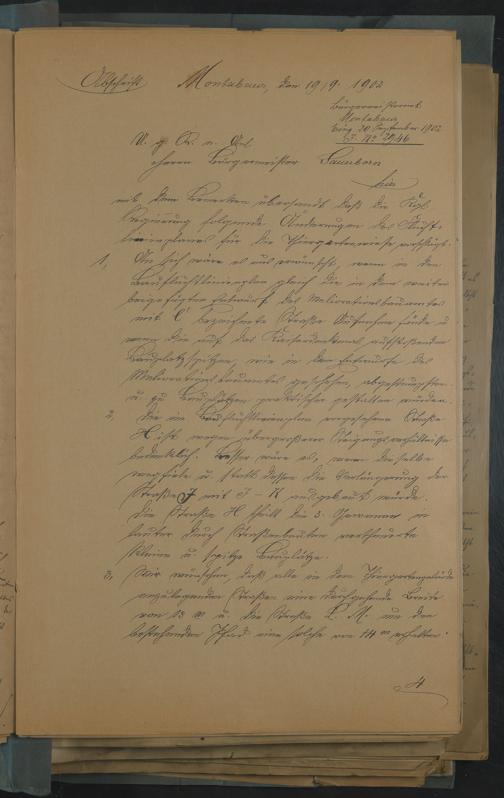 Abschrift
Montabaur, den 19/9. 1902
Bürgermeisteramt
Montabaur
Eing. 20 September 1902
J. No 2946
U. g. R. n. Anl.
Herrn Bürgermeister Sauerborn
hier
mit dem Bemerken übersandt daß die Kgl.
Regierung folgende Änderungen des Flucht-
linienplanes für die Thiergartenwiese vorschlägt.
1, An sich wäre es uns erwünscht, wenn in den
Baufluchtlinienplan gleich die in dem weiter
beigefügten Entwurf des Meliorationsbauamtes
mit C bezeichnete Straße Aufnahme fände u
wenn die auf das Kaiserdenkmal aufstoßenden
Bauplatzspitzen, wie in dem Entwurfe des
Meliorationsbauamtes geschehen, abgestumpft
u. zu Bauplätzen praktischer gestaltet würden.
2, Die im Baufluchtlinienplan vorgesehene Straße
H ist wegen übergroßer Steigungsverhältnisse
bedenklich. Besser wäre es, wenn dieselbe
wegfiele u. statt dessen die Verlängerung der
Straße J mit J - K ausgebaut würde.
Die Straße H theilt die 3. Gewann in
lauter durch Straßenbauten verteuerte
kleine u. spitze Bauplätze.
3, Wir wünschen, daß alle in dem Thiergartengelände
anzulegenden Straßen eine durchgehende Breite
von 13 m u. die Straße L. M. um den
bestehenden Pfad eine solche von 14 m erhalten.
4